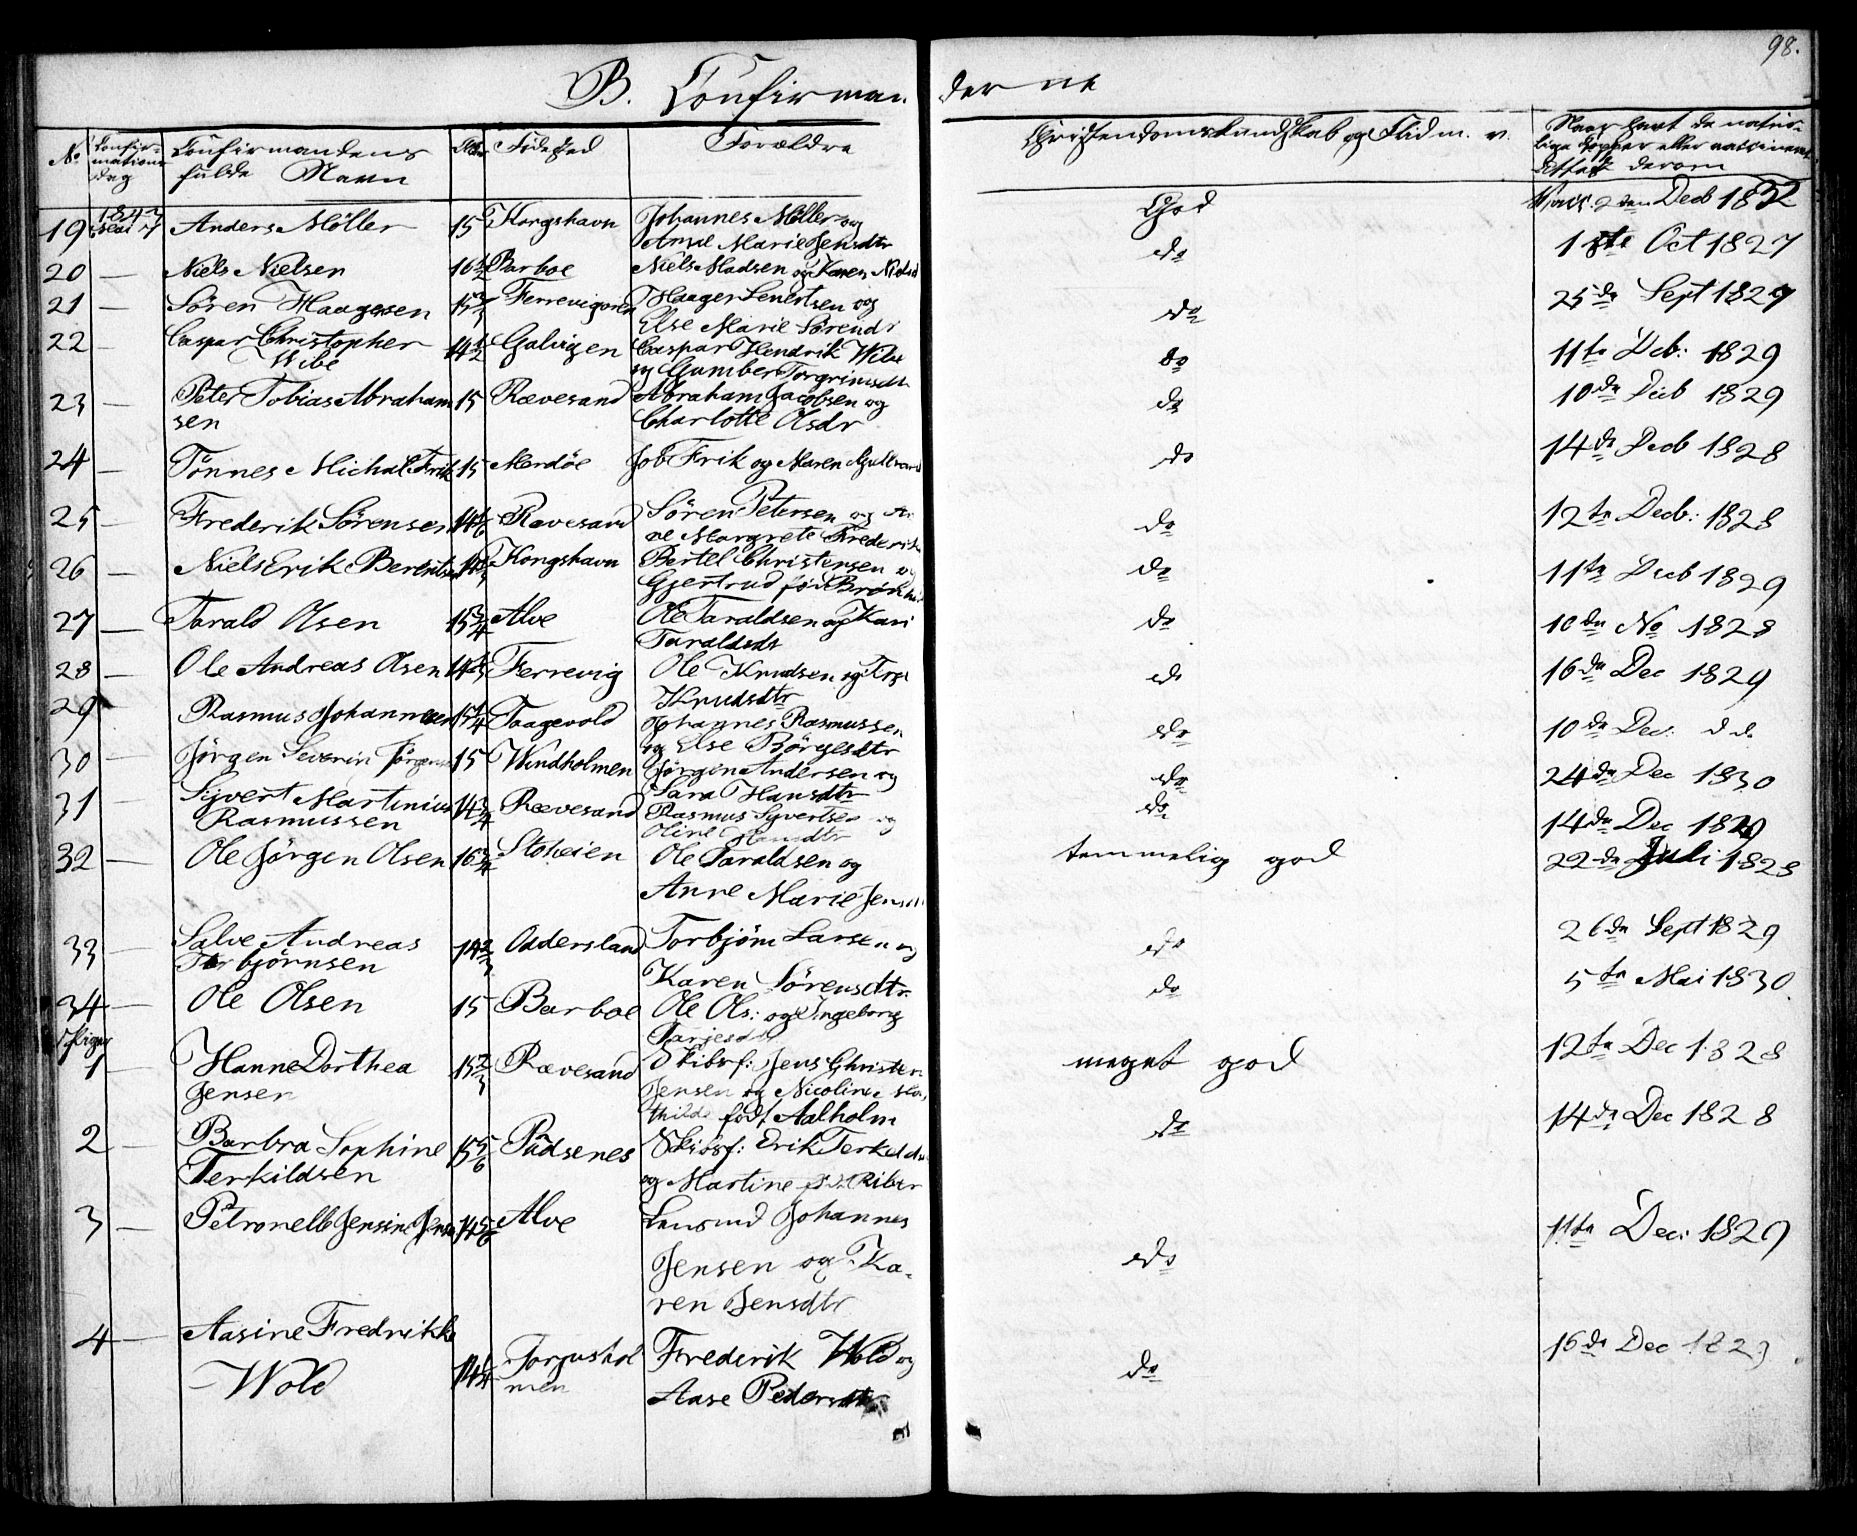 98.
B. Confirmanderne
No Confirmations dag Confirmandens fulde Navn Alder Fødested Forældre Christendomskundskab og Flid m. v. Naar havt de naturlige Kopper eller vaccineret Attest derom
19 1843 Mai 7 Anders Möller 15 Kongshavn Johannes Möller og God Vacc. 2den Decb 1832
Anne Marie Jensdtr
20 — Niels Nielsen 16½ Barboe Niels Madsen og Karen Nielsd do 1ste Oct 1827
21 — Sören Haagesen Ferrevigoren Haager Senertsen og do 25de Sept 1829
Else Marie Sörensd
22 — Caspar Christopher 14½ Galvigen Caspar Hendrik Wibe do 11te Dcb: 1829
Wibe og Gumber Torgrimsdtr
23 — Peter Tobias Abraham 15 Rævesand Abraham Jacobsen og do 10de Deb 1829
sen Charlotte Olsdr
24 — Tönnes Michal Frik 15 Merdöe Job Frik og Maren do 14de Decb 1828
25 — Frederik Sörensen 14 Rævesand Sören Petersen og An do 12te Decb: 1828
ne Margrete Frederiks
26 — Niels Erik Berentsen Kongshavn Bertel Christensen og do 11te Decb 1829
Gjertrud föd
27 — Tarald Olsen 15¾ Alve Ole Taraldsen og Kari do 10de No 1828
Taraldsdtr
28 — Ole Andreas Olsen Ferrevig Ole Knudsen og do 16de Dec 1829
Knudsdtr
29 Rasmus Johannesen 15¼ Taagevold Johannes Rasmussen do 10de Dec. do
og Else Börgesdtr
30 — Jörgen Severin Jörgens 15 Windholmen Jörgen Andersen og do 24de Dec 1830
Sara Hansdtr
31 — Syvert Martinius 14¾ Rævesand Rasmus Syvertsen og do 14de Dec 1829
Rasmussen Oline Hansdtr
32 — Ole Jörgen Olsen 16¾ Stoheien Ole Taraldsen og temmelig god 22de Juli 1828
Anne Marie Jensd
33 — Salve Andreas 14⅔ Oddersland Torbjörn Larsen og do 26de Sept 1829
Torbjörnsen Karen Sörensdtr
34 — Ole Olsen 15 Barboe Ole Ols: og Ingeborg do 5te Mai 1830
Tarjesdtr
Piger
1 — Hanne Dorthea 15⅔ Rævesand Skibsf: Jens Christen meget god 12te Dec 1828
Jensen Jensen og Nicoline Ma
thilde födt Aalholm
2 — Barbra Sophine 15⅚ Püdsenes Skibsf: Erik Terkelds do 14de Dec 1828
Terkildsen og Martine
3 — Petronelle Jensine Jens 14⅚ Alve Johannes do 11te Dec: 1829
Jensen og Ka-
ren Jensdtr
4 — Aasine Fredrikke 14¼ Torjushol Frederik Wold og do 16de Dec 1829
Wold men Aase Pedersdtr